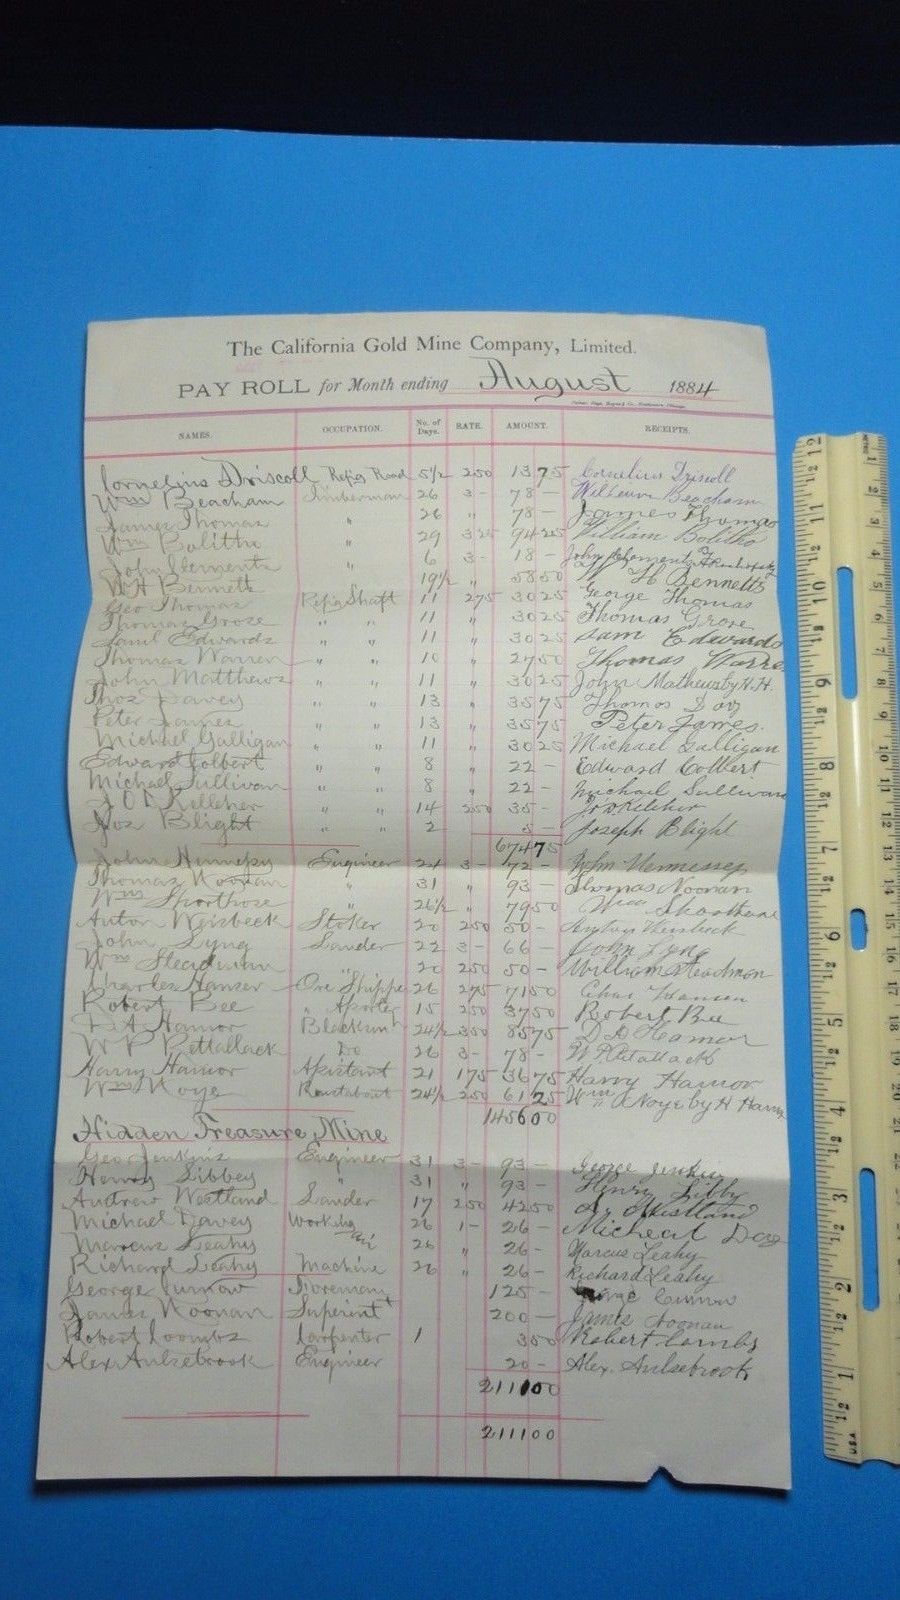 The California Gold Mine Company, Limited.
PAY ROLL for Month ending August 1884
NAMES. OCCUPATION. No. of Days. RATE. AMOUNT. RECEIPTS.
Cornelius Driscoll Road 5½ 250 1375 Cornelius Driscoll
Wm Beacham Timberman 26 3- 78- William Beacham
James Thomas " 26 " 78- James Thomas
Wm Bolitho " 29 325 9425 William Bolitho
John Clements " 6 3- 18- John Clements
W H Bennett " 19½ " 5850 W H Bennetts
Geo Thomas Shaft 11 275 3025 George Thomas
Thomas Grose " " 11 " 3025 Thomas Grose
Saml Edwards " " 11 " 3025 Sam Edwards
Thomas Warren " " 10 " 2750 Thomas Warre
John Matthews " " 11 " 3025 John Mathews by H.H.
Thos Davey " " 13 " 3575 Thomos Davy
Peter James " " 13 " 3575 Peter James.
Michael Galligan " " 11 " 3025 Michael Galligan
Edward Colbert " " 8 " 22- Edward Colbert
Michael Sullivan " " 8 " 22- Michael Sullivan
J O D Kelleher " " 14 250 35-
Jos Blight " " 2 5- Joseph Blight
67475
John Engineer 24 3- 72- Wm Hennessey
Thomas Noonan " 31 " 93- Thomas Noonan
Wm Shorthose " 26½ " 7950 Wm
Anton Weisbeck Stoker 20 250 50-
John Lyng Lander 22 3- 66- John Lyng
Wm Steadman " 20 250 50- William Steadman
Charles Hanser Ore Shippe 26 275 7150 Chas Hansen
Robert Bee " 15 250 3750 Robert Bee
D A Hamor Blacksmt 24½ 350 8575 D D Hamor
W P Pettallack Do 26 3- 78-
Harry Hamor Assistant 21 175 3675 Harry Hamor
Wm Noye Roustabout 24½ 250 6125 Wm Noye by H Hamor
145600
Hidden Treasure Mine
Geo Jenkins Engineer 31 3- 93- George Jenkin
Henry Libbey " 31 " 93- Henry Libby
Andrew Westland Lander 17 250 4250 Westland
Michael Davey Working 26 1- 26- Micheal Davy
Marcus Leahy 26 " 26- Marcus Leahy
Richard Leahy Machine 26 " 26- Richard Leahy
George Foreman 125- George
James Noonan Superent 200- James Noonan
Robert Coombs Carpenter 1 350 Robert Combs
Alex Aulsebrook Engineer 20- Alex. Aulsebrook
211100
211100
12 11 10 9 8 7 6 5 4 3 2 1
USA
1 2 3 4 5 6 7 8 9 10 11 12